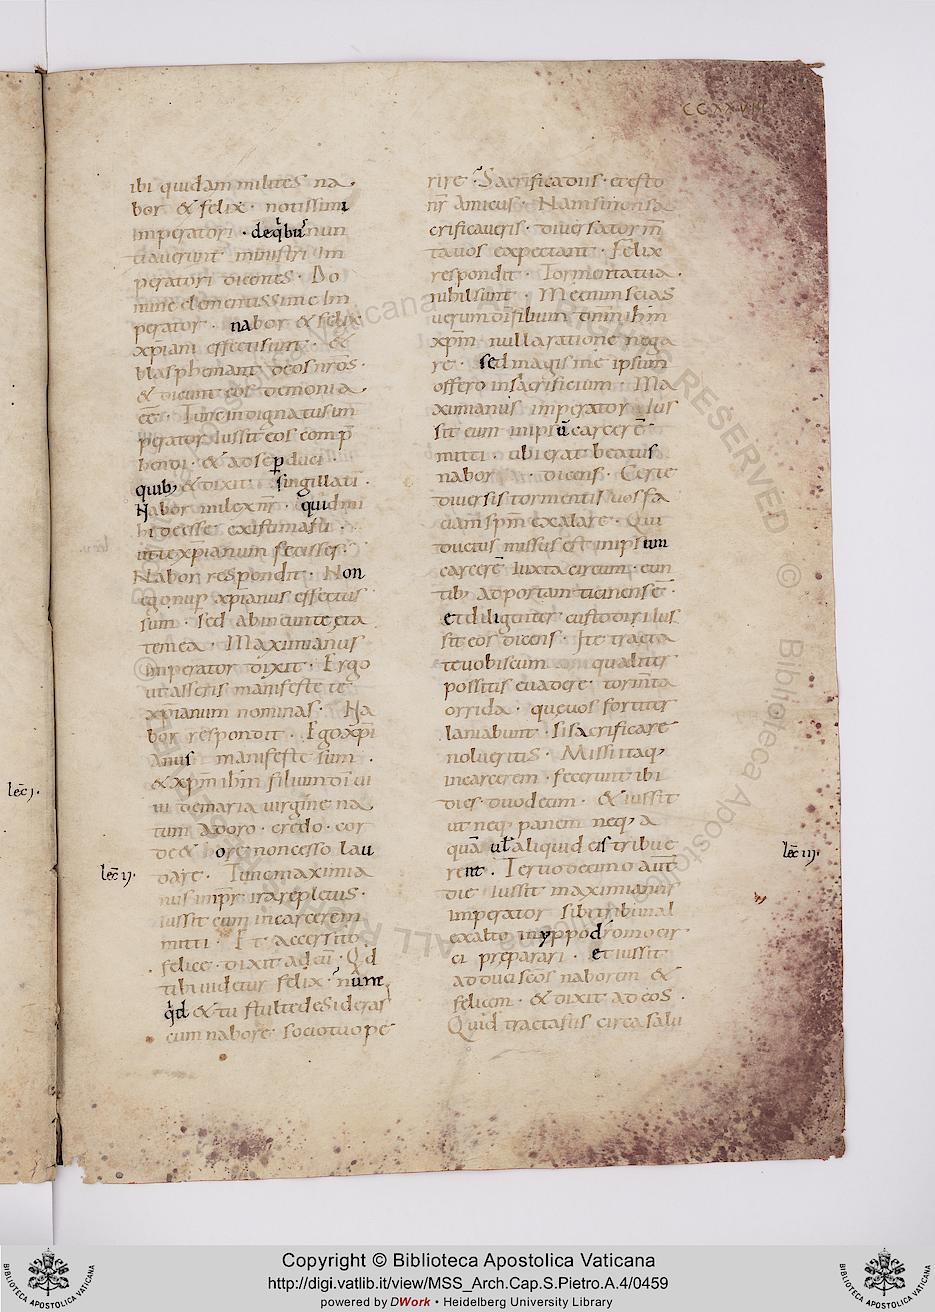 CCXXVII
ibi quidam milites na
bor & felix · notissimi
imperatori · deq̇bus nun
tiauerunt ministri im
peratori dicentes · Do
mine clementissime im
perator · nabor & felix
xp̄iani effecti sunt · &
blasphemant deos nr̄os ·
& dicunt eos demonia
eē · Tunc indignatus im
perator iussit eos comp̄
hendi · & ad se p̱duci ·
quib; & dixit · singillati ·
Nabor milex nr̄ · quid mi
hi deesse existimasti ·
ut te xpianum fecisses ·
Nabor respondit · Non
ego nup̱ xpianus effectus
sum · sed ab ineunte ęta
te mea · Maximianus
imperator dixit · Ergo
ut asseris manifeste te
xp̄ianum nominas · Na
bor respondit · Ego xp̄i
anus manifeste sum ·
& xpm̄ ihm̄ filium dī ui
ui de maria uirgine na
tum adoro · credo · cor
de & ore non cesso lau
lec̄ ij.
dare · Tunc maximia
nus impr̄ ira repletus ·
iussit eum in carcerem
mitti · Et accersito
felice · dixit ad eū · Qd
tibi uidetur felix · nūne
q̇d & tu stulte desideras
cum nabore socio tuo pe
rire · Sacrifica diis · et esto
nr̄ amicus · Nam si non sa
crificaueris · diuersa torm̄
ta uos expectant · Felix
respondit · Tormenta tua
nihil sunt · Mecum scias
uerum dī filium dnm ihm
xpm̄ · nulla ratione nega
re · sed magis me ipsum
offero in sacrificium · Ma
ximianus imperator ius
sit eum in ipsū carcerē
mitti · ubi erat beatus
nabor · dicens · Certe
diuersis tormentis uos fa
ciam spm̄ exalare · Qui
ductus missus est in ipsum
carcerē iuxta circum · eun
tib; ad portam ticinensē ·
et diligenter custodiri ius
sit eos dicens · Ite tracta
te uobiscum qualiter
possitis euadere · torm̄ta
orrida · que uos fortiter
laniabunt · si sacrificare
nolueritis · Missi itaq;
in carcerem · fecerunt ibi
dies duodecim · & iussit
ut neq; panem neq; a
quā uł aliquid eis tribue
lec̄ iij.
rent . Tertio decimo aut̄
die iussit maximianus
imperator sibi tribunal
excalto in yppodromo cir
ci preparari · et iussit
adduci scōs naborem &
felicem · & dixit ad eos ·
Quid tractastis circa salu
lec̄ j.
Copyright © Biblioteca Apostolica Vaticana
http://digi.vatlib.it/view/MSS_Arch.Cap.S.Pietro.A.4/0459
powered by DWork • Heidelberg University Library